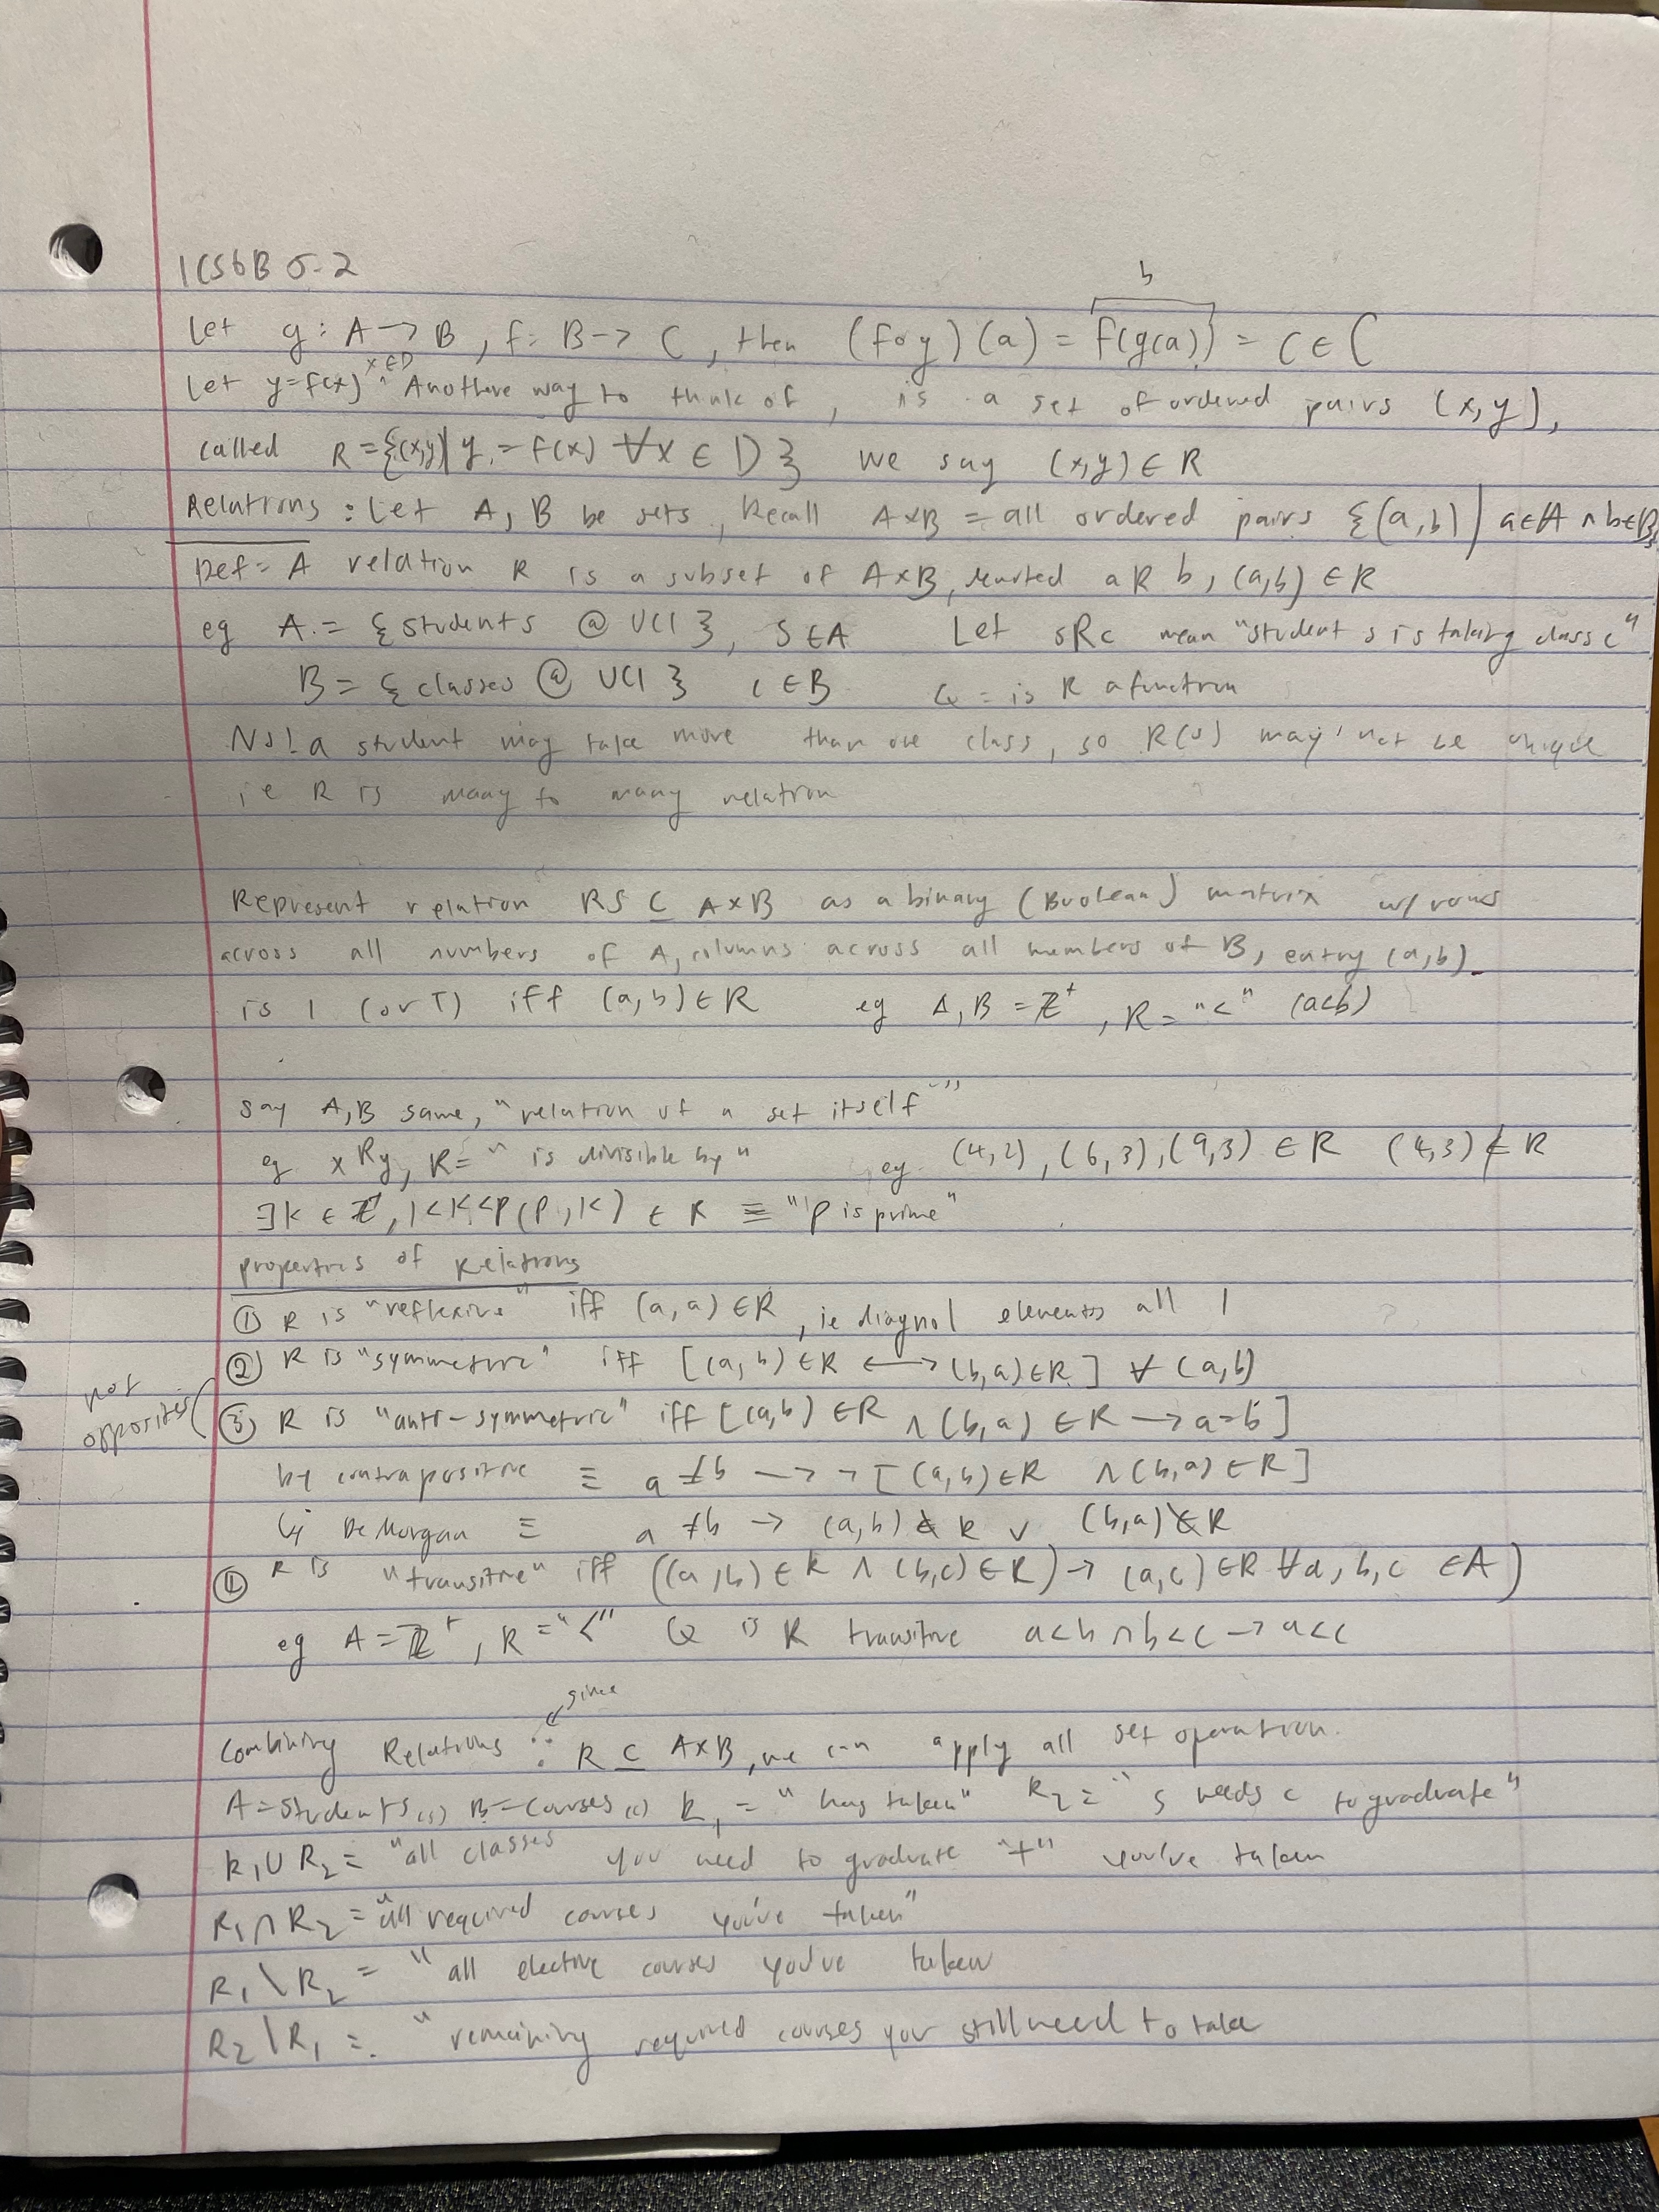 ICS6B 5-2
b
Let g: A → B, f: B → C, then (f∘g)(a) = f(g(a)) = c ∈ C
Let y=f(x) ^ x∈D Anothere way to think of, is a set of ordered pairs (x,y),
called R={(x,y)| y = f(x) ∀x ∈ D} we say (x,y) ∈ R
Relations: Let A, B be sets, Recall A×B = all ordered pairs {(a,b) | a∈A ∧ b∈B}
Def: A relation R is a subset of A×B, denoted a R b, (a,b) ∈ R
eg A = {students @ UCI}, s∈A Let sRc mean "student s is taking class c"
B = {classes @ UCI} c∈B Q: is R a function
No! a student may take more than one class, so R(s) may not be unique
ie R is many to many relation
Represent relation RS ⊆ A×B as a binary (Boolean) matrix w/ rows
across all numbers of A, columns across all members of B, entry (a,b)
is 1 (or T) iff (a,b)∈R eg A,B = ℤ⁺, R = "<" (a<b)
say A,B same, "relation of a set itself"
eg xRy, R= "is divisible by" eg (4,2), (6,3), (9,3) ∈ R (4,3) ∉ R
∃k ∈ ℤ, 1<k<p (p,k) ∈ R ≡ "p is prime"
properties of Relations
① R is "reflexive" iff (a,a) ∈ R, ie diagnol elements all 1
② R is "symmetric" iff [(a,b) ∈ R ⟷ (b,a) ∈ R] ∀ (a,b)
not opposites
③ R is "anti-symmetric" iff [(a,b) ∈ R ∧ (b,a) ∈ R → a=b]
by contrapositive ≡ a ≠ b → ¬[(a,b) ∈ R ∧ (b,a) ∈ R]
by De Morgan ≡ a ≠ b → (a,b) ∉ R ∨ (b,a) ∉ R
④ R is "transitive" iff ((a,b) ∈ R ∧ (b,c) ∈ R) → (a,c) ∈ R ∀a,b,c ∈ A)
eg A = ℤ⁺, R = "<" Q is R transitive a<b ∧ b<c → a<c
since
Combining Relations ∵ R ⊆ A×B, we can apply all set operation.
A=Students(s) B=Courses(c) R₁ = "has taken" R₂ = "s needs c to graduate"
R₁∪R₂ = "all classes you need to graduate "+" you've taken
R₁∩R₂ = "all required courses you've taken"
R₁\R₂ = "all elective courses you've taken
R₂\R₁ = "remaining required courses you still need to take